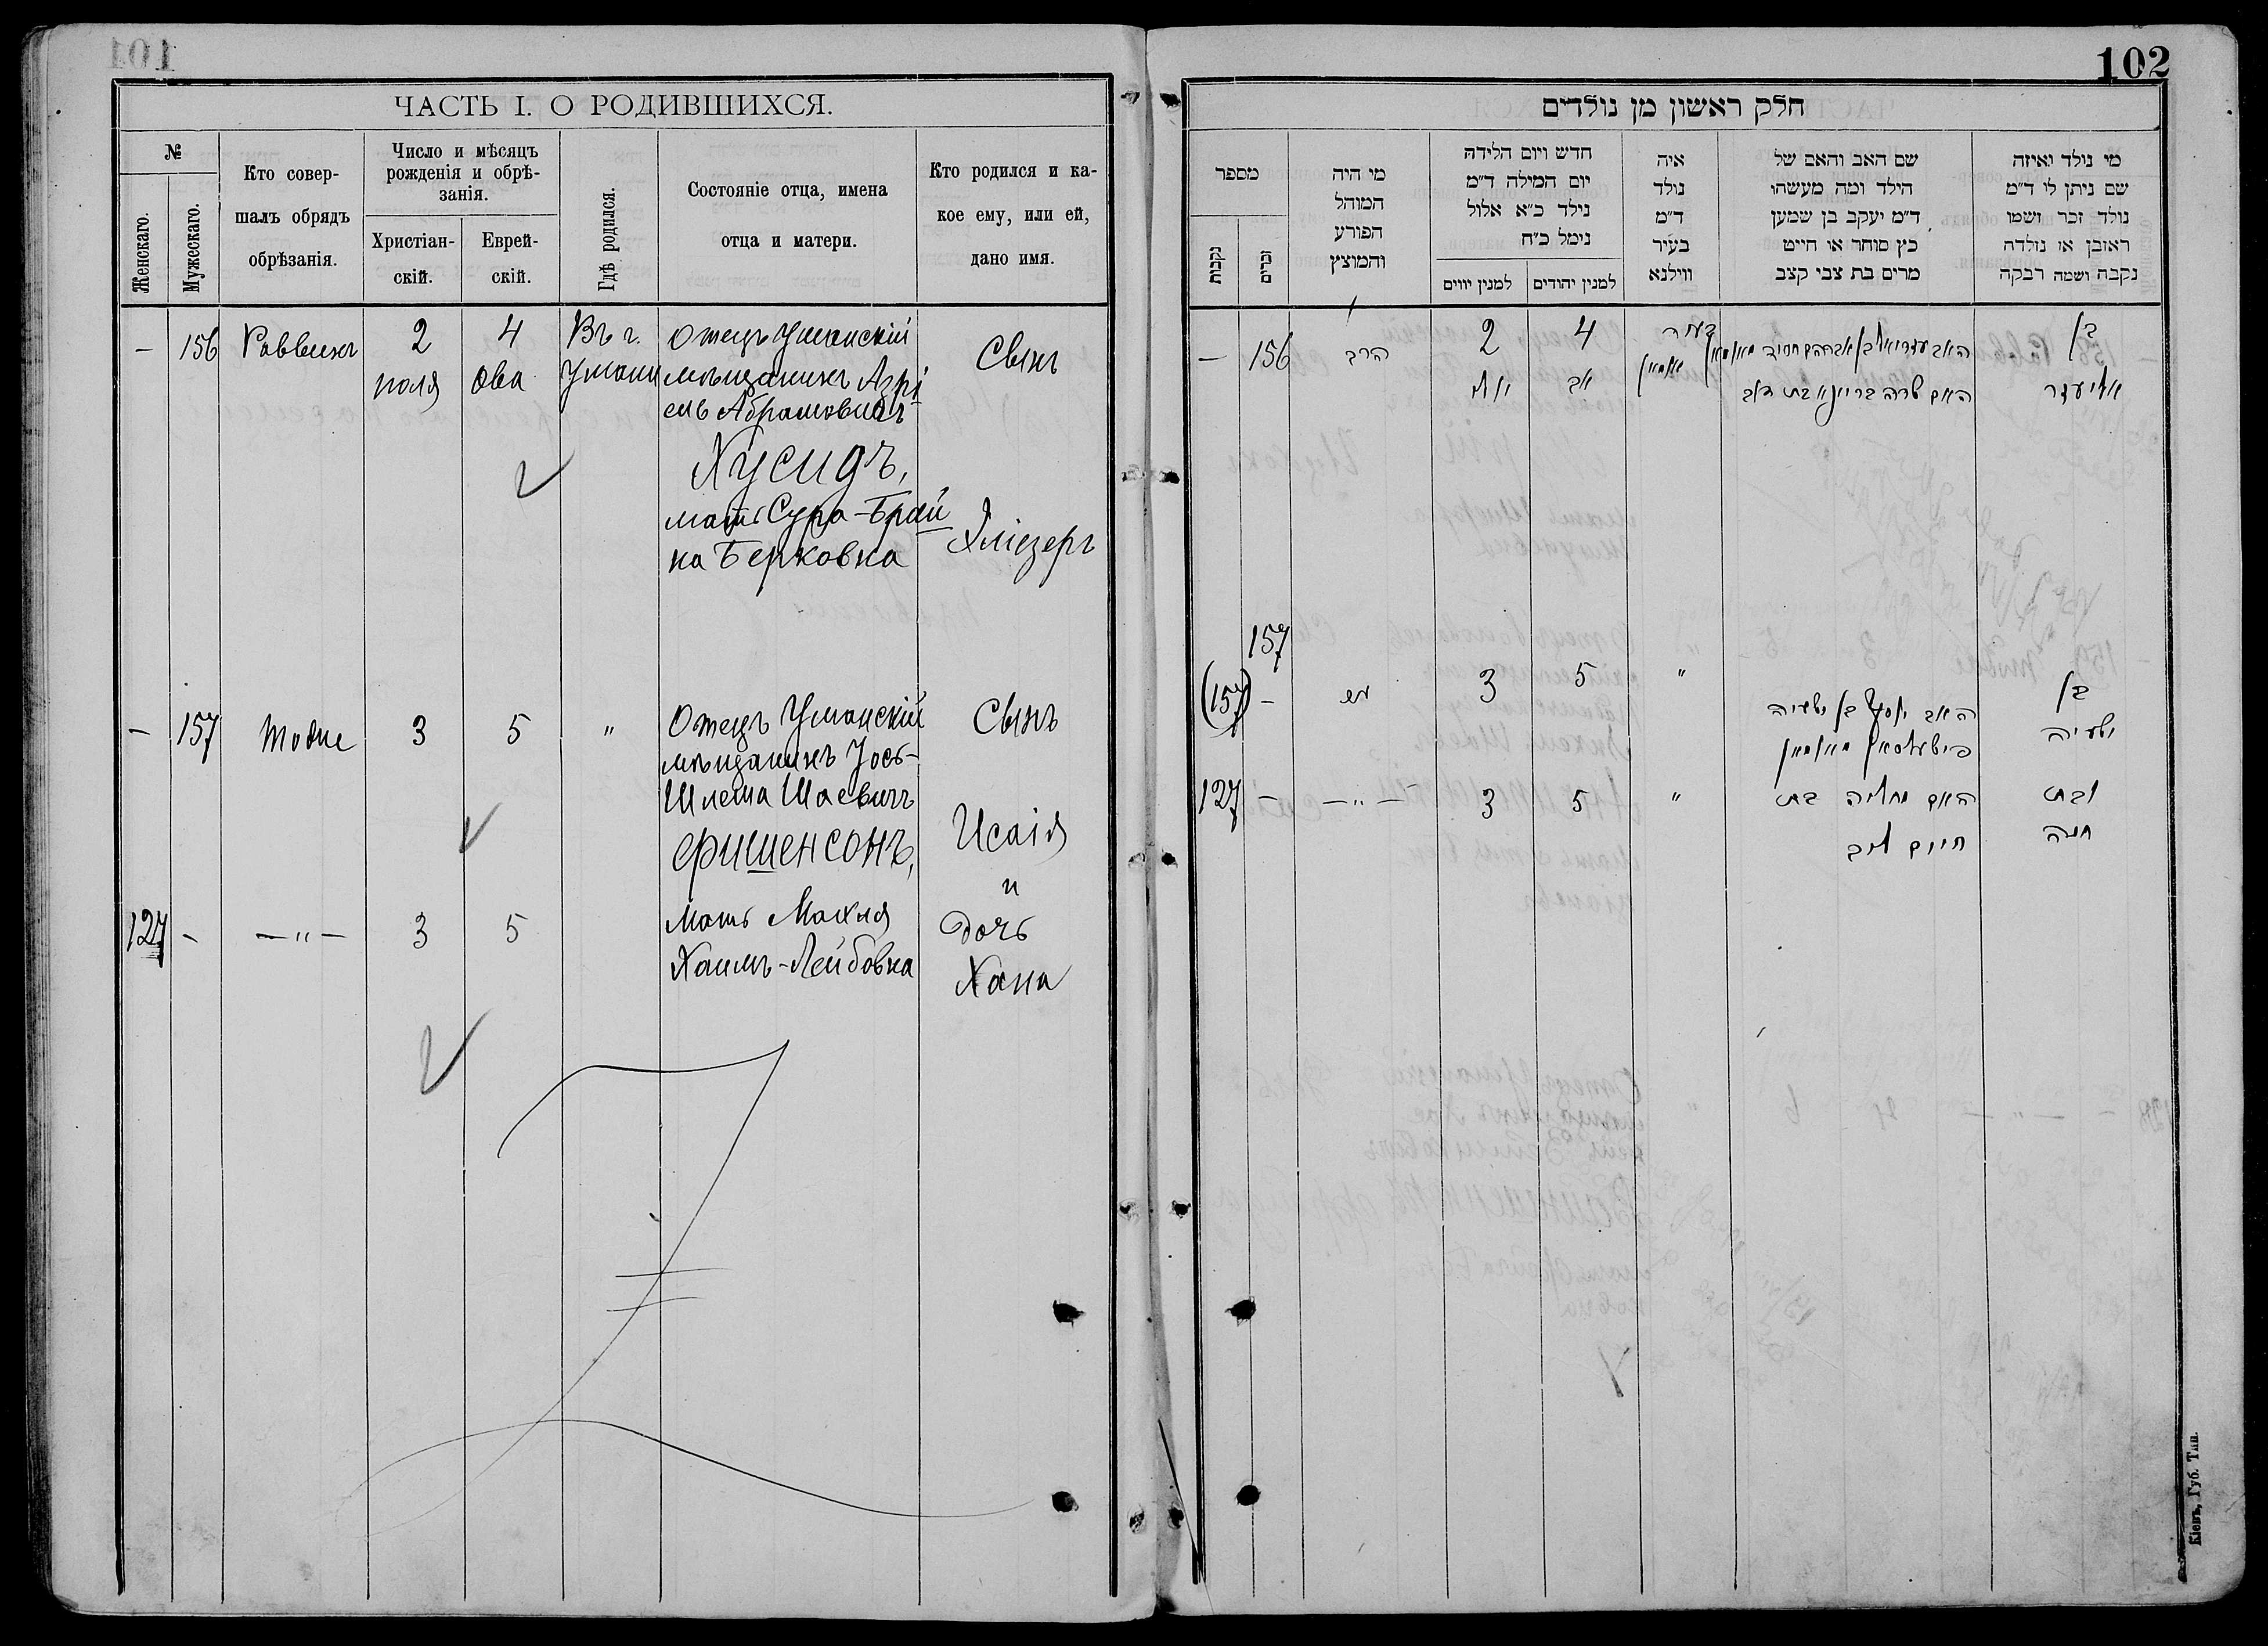 101
ЧАСТЬ I. О РОДИВШИХСЯ.
№
Женскаго.
Мужескаго.
Кто совер-
шалъ обрядъ
обрѣзанія.
Число и мѣсяцъ
рожденія и обрѣ-
занія.
Христіан-
скій.
Еврей-
скій.
Гдѣ родился.
Состояніе отца, имена
отца и матери.
Кто родился и ка-
кое ему, или ей,
дано имя.
— 156 Раввинъ 2 4 Въ г. Отецъ Уманскій Сынъ
юля Ова Умани мѣщанинъ Азрі
ель Абрамовичъ
Хусидъ,
мать Сура-Брай
на Берковна Эліезеръ
— 157 тоже 3 5 " Отецъ Уманскій Сынъ
мѣщанинъ Іось-
Шлема Шаевичъ
Фишенсонъ, Исаія
и
127 - —"— 3 5 мать Махля дочь
Хаимъ-Лейбовна Хана
102
חלק ראשון מן נולדים
מי נולד ואיזה
שם ניתן לו ד״מ
נולד זכר ושמו
ראובן או נולדה
נקבה ושמה רבקה
שם האב והאם של
הילד ומה מעשהו
ד״מ יעקב בן שמען
כץ סוחר או חייט
מרים בת צבי קצב
איה
נולד
ד״מ
בעיר
ווילנא
חדש ויום הלידה
יום המילה ד״מ
נילד כ״א אלול
נימל כ״ח
למנין יהודים
למנין יווים
מי היה
המוהל
הפורע
והמוצץ
מספר
זכרים
נקבות
בן האב עזריאל בן אברהם חסיד מאומאן בעיר 4 2 הרב 156 —
אליעזר האם שרה בריינא בת דוב אומאן אב יולי
157
בן האב יוסף בן ישעיה " 5 3 (157) -
ישעיה פישענסאן מאומאן
ובת האם מחליה בת " 5 3 —"— - 127
חנה חיים ליב
Кіевъ, Губ. Тип.